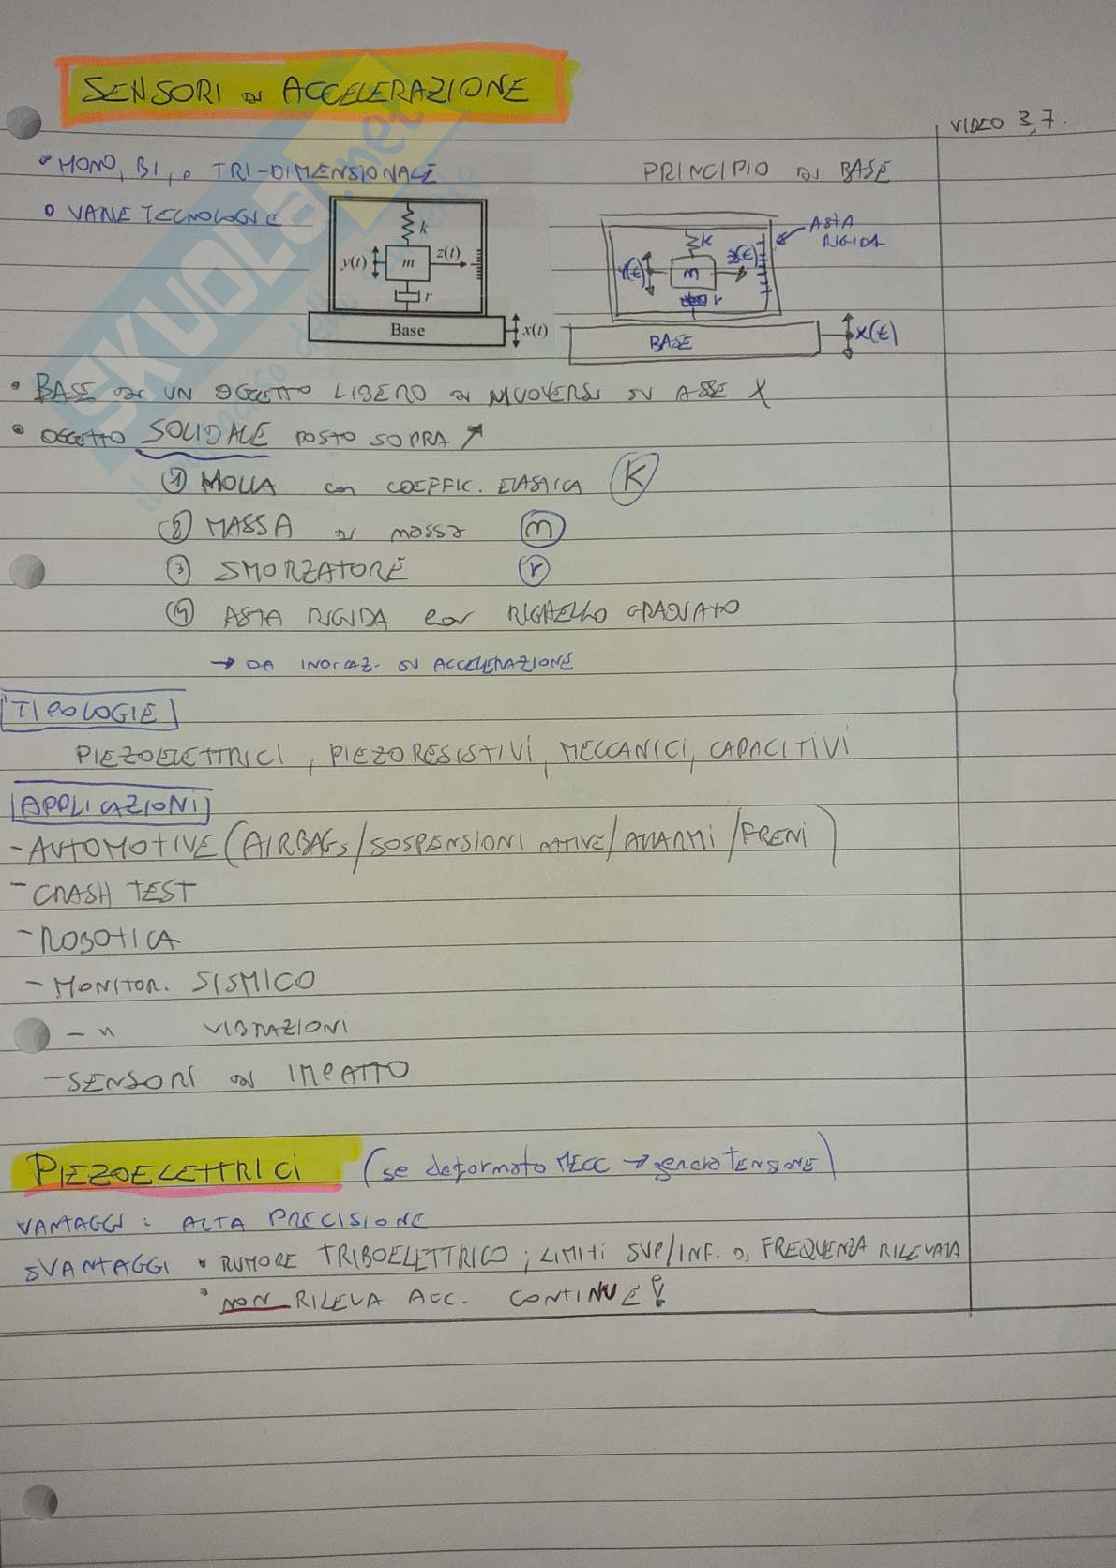 SENSORI DI ACCELERAZIONE
VIDEO 3,7.
• MONO, BI, e TRI-DIMENSIONALE
PRINCIPIO DI BASE
• VARIE TECNOLOGIE
k
y(t) m z(t)
r
Base
x(t)
ASTA RIGIDA
K
y(t) m z(t)
r
BASE
x(t)
• BASE DI UN OGGETTO LIBERO DI MUOVERSI SU ASSE X
• OGGETTO SOLIDALE POSTO SOPRA ↗
① MOLLA con COEFFIC. ELASTICA K
② MASSA di massa m
③ SMORZATORE r
④ ASTA RIGIDA con RIGHELLO GRADUATO
→ DA INDICAZ. SU ACCELERAZIONE
TIPOLOGIE
PIEZOELETTRICI, PIEZORESISTIVI, MECCANICI, CAPACITIVI
APPLICAZIONI
- AUTOMOTIVE (AIRBAGS/SOSPENSIONI ATTIVE/ALLARMI/FRENI)
- CRASH TEST
- ROBOTICA
- MONITOR. SISMICO
- " VIBRAZIONI
- SENSORI DI IMPATTO
PIEZOELETTRICI (se deformato MECC → genero TENSIONE)
VANTAGGI: ALTA PRECISIONE
SVANTAGGI • RUMORE TRIBOELETTRICO; LIMITI SUP/INF. DI FREQUENZA RILEVATA
• NON RILEVA ACC. CONTINUE!
SKUOLA.net